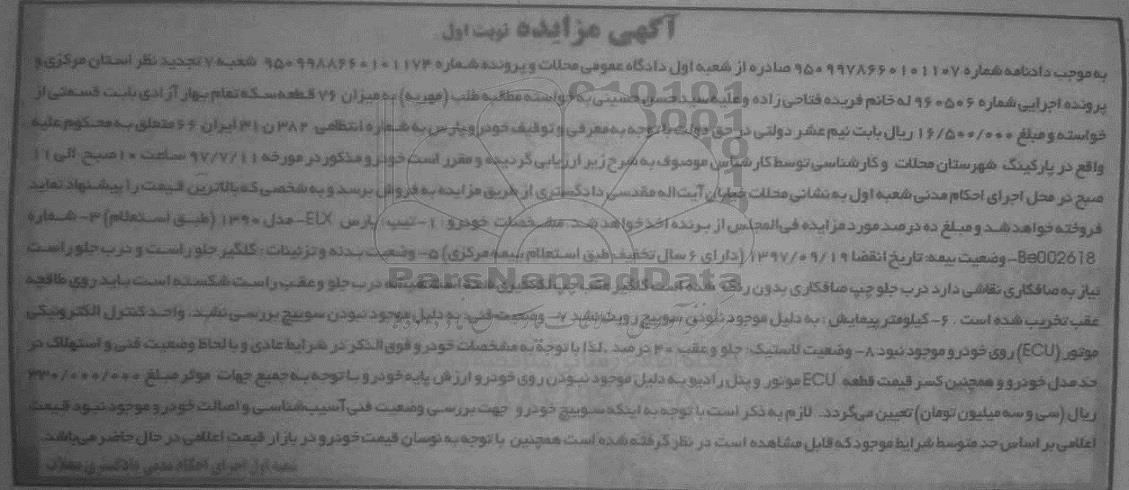 آگهی مزایده نوبت اول
به موجب دادنامه شماره ۹۵۰۹۹۷۸۶۶۰۱۰۱۱۰۷ صادره از شعبه اول دادگاه عمومی محلات و پرونده شماره ۹۵۰۹۹۸۸۶۶۰۱۰۱۱۷۴ شعبه ۷ تجدید نظر استان مرکزی و
پرونده اجرایی شماره ۹۶۰۵۰۶ له خانم فریده فتاحی زاده و علیه سید حسن حسینی به خواسته مطالبه طلب (مهریه) به میزان ۷۶ قطعه سکه تمام بهار آزادی بابت قسمتی از
خواسته و مبلغ ۱۶/۵۰۰/۰۰۰ ریال بابت نیم عشر دولتی در حق دولت با توجه به معرفی و توقیف خودرو پارس به شماره انتظامی ۳۸۲ ن ۳۱ ایران ۶۶ متعلق به محکوم علیه
واقع در پارکینگ شهرستان محلات و کارشناسی توسط کارشناس موصوف به شرح زیر ارزیابی گردیده و مقرر است خودرو مذکور در مورخه ۹۷/۷/۱۱ ساعت ۱۰ صبح الی ۱۱
صبح در محل اجرای احکام مدنی شعبه اول به نشانی محلات خیابان آیت اله مقدسی دادگستری از طریق مزایده به فروش برسد و به شخصی که بالاترین قیمت را پیشنهاد نماید
فروخته خواهد شد و مبلغ ده درصد مورد مزایده فی المجلس از برنده اخذ خواهد شد. مشخصات خودرو: ۱- تیپ پارس ELX- مدل ۱۳۹۰ (طبق استعلام) ۳- شماره
Be002618- وضعیت بیمه: تاریخ انقضا ۱۳۹۷/۰۹/۱۹ (دارای ۶ سال تخفیف طبق استعلام بیمه مرکزی) ۵- وضعیت بدنه و تزئینات: گلگیر جلو راست و درب جلو راست
نیاز به صافکاری نقاشی دارد درب جلو چپ صافکاری بدون رنگ شده است گلگیر عقب چپ شیشه درب جلو و عقب راست شکسته است باید روی طاقچه
عقب تخریب شده است. ۶- کیلومتر پیمایش: به دلیل موجود نبودن سوییچ رویت نشد ۷- وضعیت فنی: به دلیل موجود نبودن سوییچ بررسی نشد. واحد کنترل الکترونیکی
موتور (ECU) روی خودرو موجود نبود ۸- وضعیت لاستیک: جلو و عقب ۴۰ درصد. لذا با توجه به مشخصات خودرو فوق الذکر در شرایط عادی و با لحاظ وضعیت فنی و استهلاک در
حد مدل خودرو و همچنین کسر قیمت قطعه ECU موتور و پنل رادیو به دلیل موجود نبودن روی خودرو ارزش پایه خودرو با توجه به جمیع جهات موثر مبلغ ۳۳۰/۰۰۰/۰۰۰
ریال (سی و سه میلیون تومان) تعیین می گردد. لازم به ذکر است با توجه به اینکه سوییچ خودرو جهت بررسی وضعیت فنی آسیب شناسی و اصالت خودرو موجود نبود قیمت
اعلامی بر اساس حد متوسط شرایط موجود که قابل مشاهده است در نظر گرفته شده است همچنین با توجه به نوسان قیمت خودرو در بازار قیمت اعلامی در حال حاضر می باشد.
شعبه اول اجرای احکام مدنی دادگستری محلات
ParsNamadData